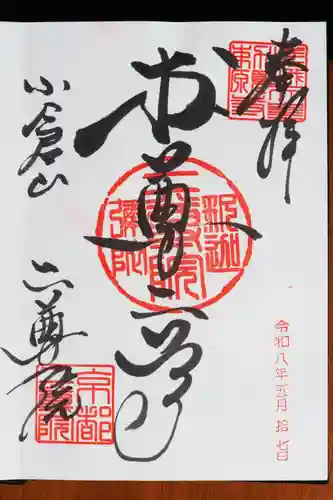 奉拝
本尊二尊
小倉山
二尊院
釈迦
弥陀
二尊院
京都
令和八年五月拾七日